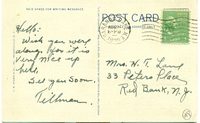 THIS SPACE FOR WRITING MESSAGE
POST CARD
Hello:
Wish you were
along for it is
very nice up
here.
See you soon.
Tillman.
Mrs. H. T. Lang
33 Peters Place
Red Bank, N. J.